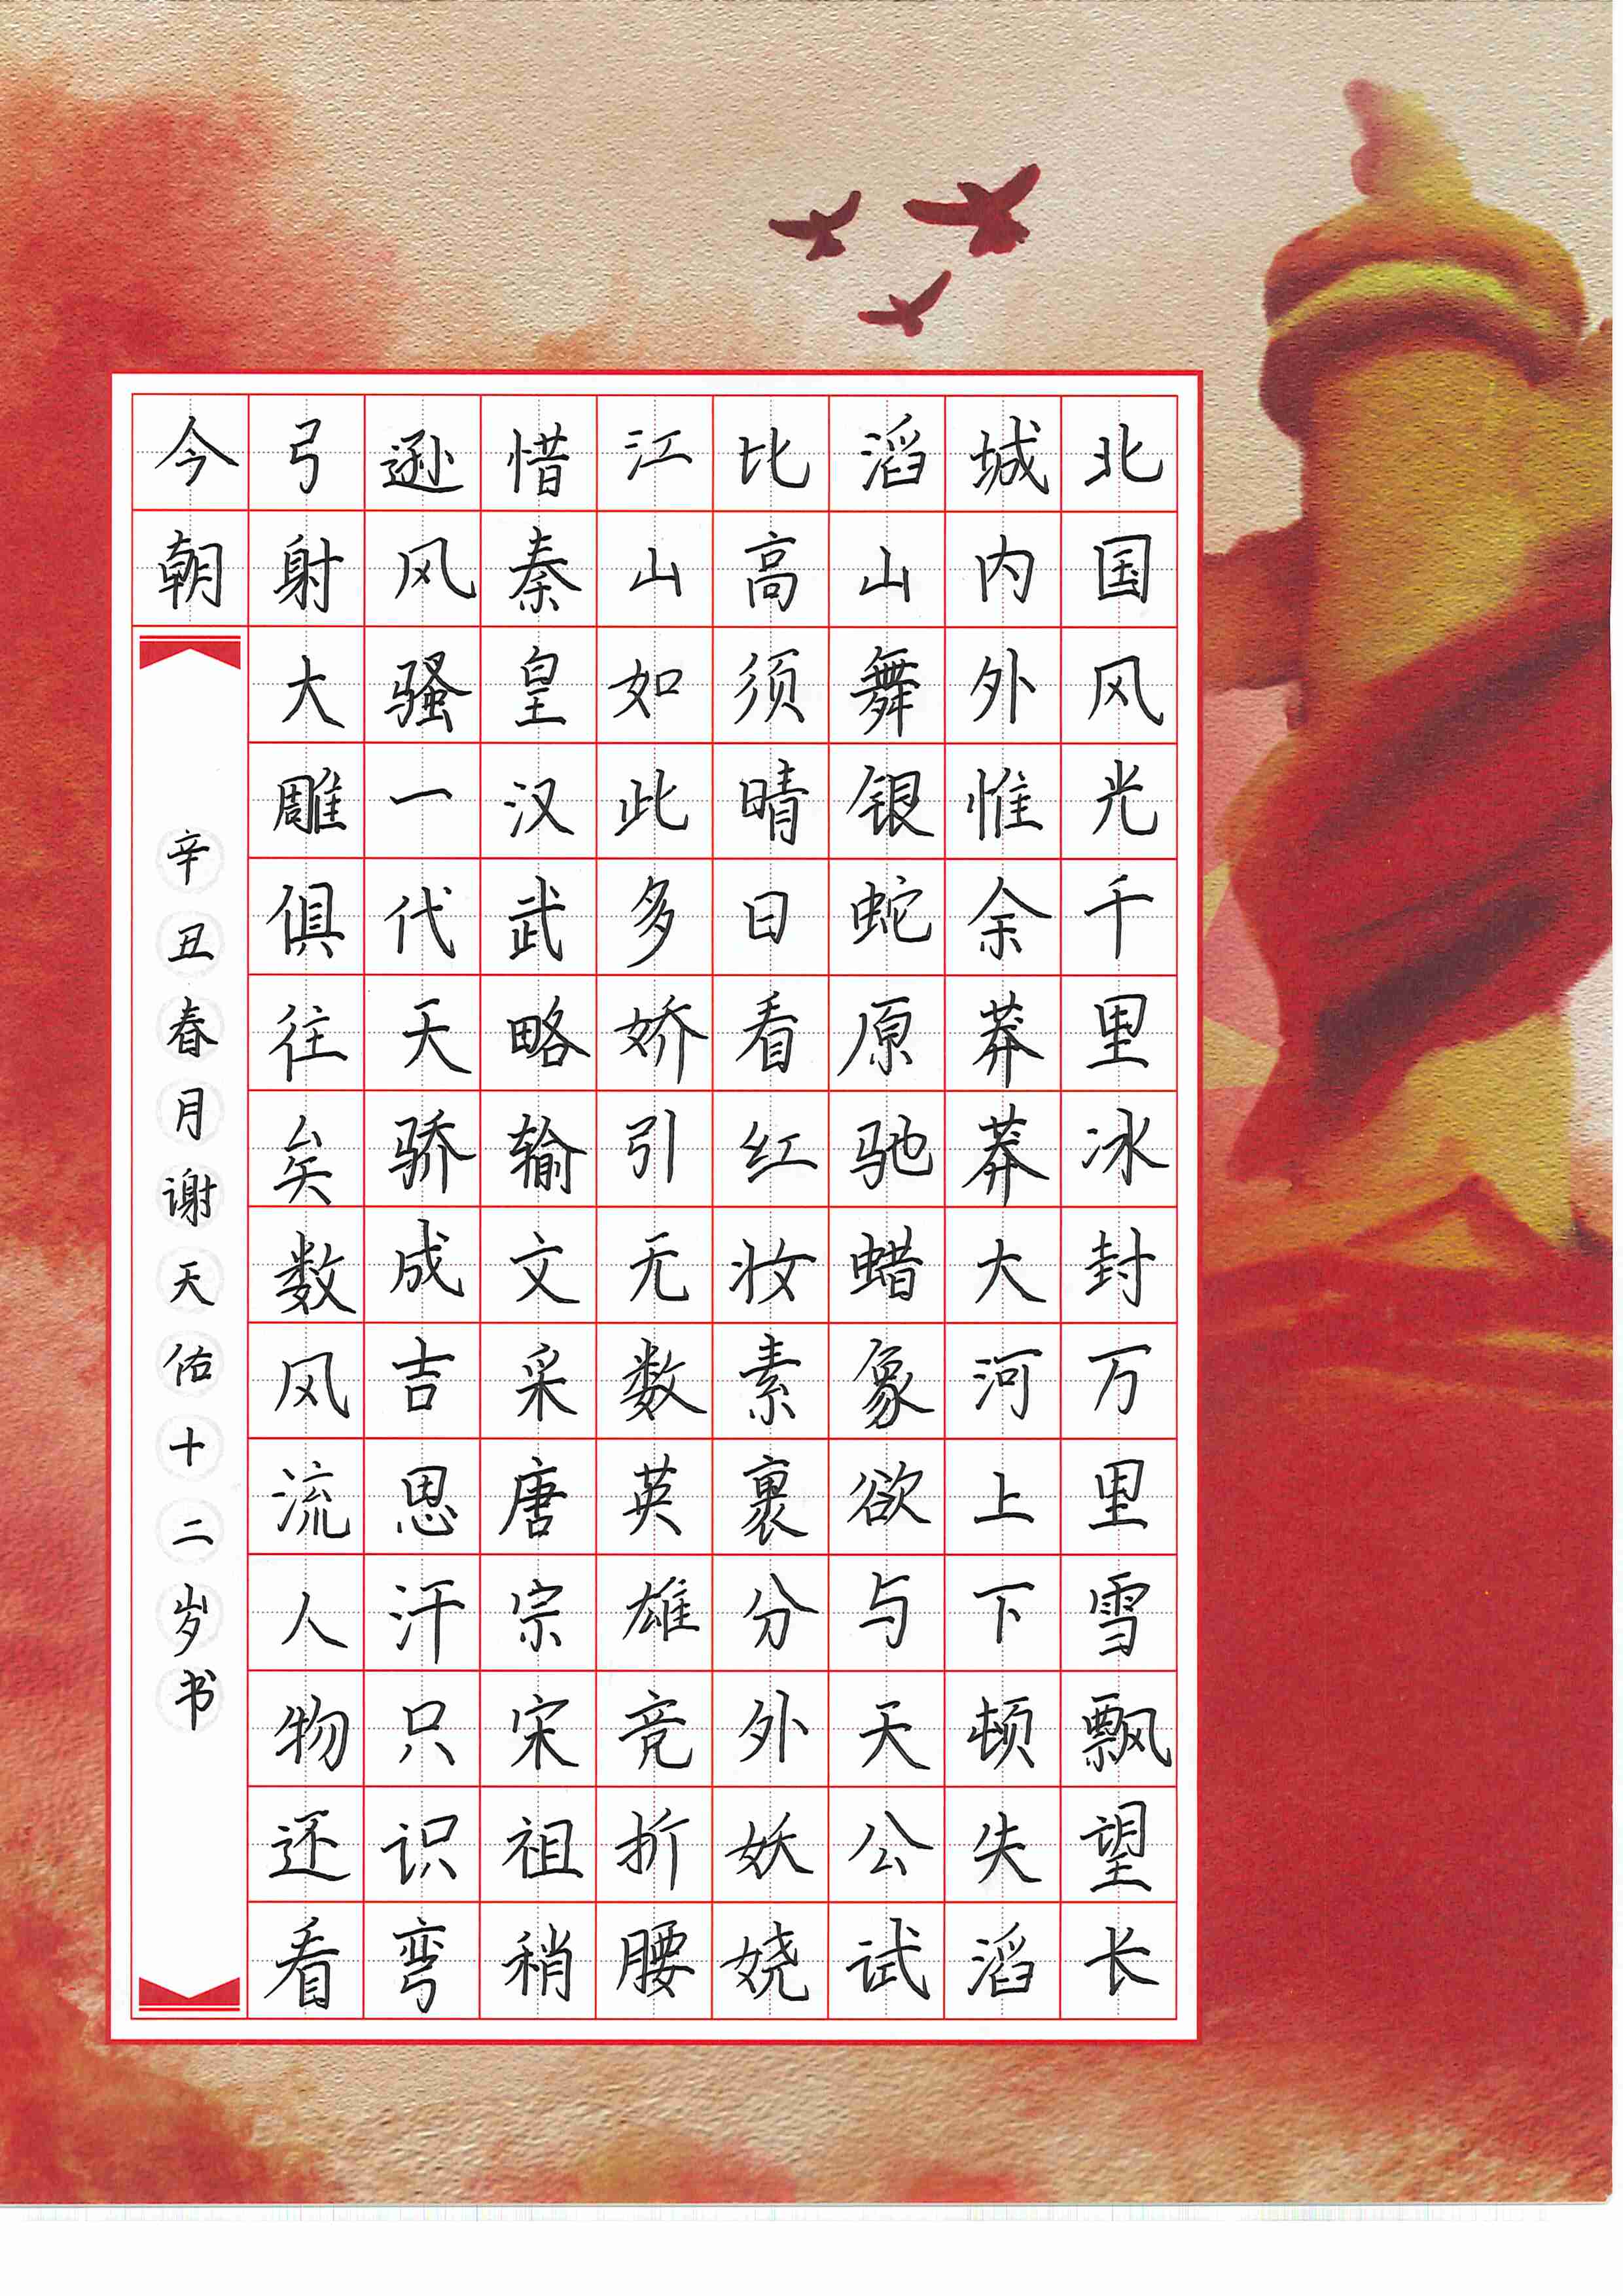 北国风光千里冰封万里雪飘望长
城内外惟余莽莽大河上下顿失滔
滔山舞银蛇原驰蜡象欲与天公试
比高须晴日看红妆素裹分外妖娆
江山如此多娇引无数英雄竞折腰
惜秦皇汉武略输文采唐宗宋祖稍
逊风骚一代天骄成吉思汗只识弯
弓射大雕俱往矣数风流人物还看
今朝
辛丑春月谢天佑十二岁书